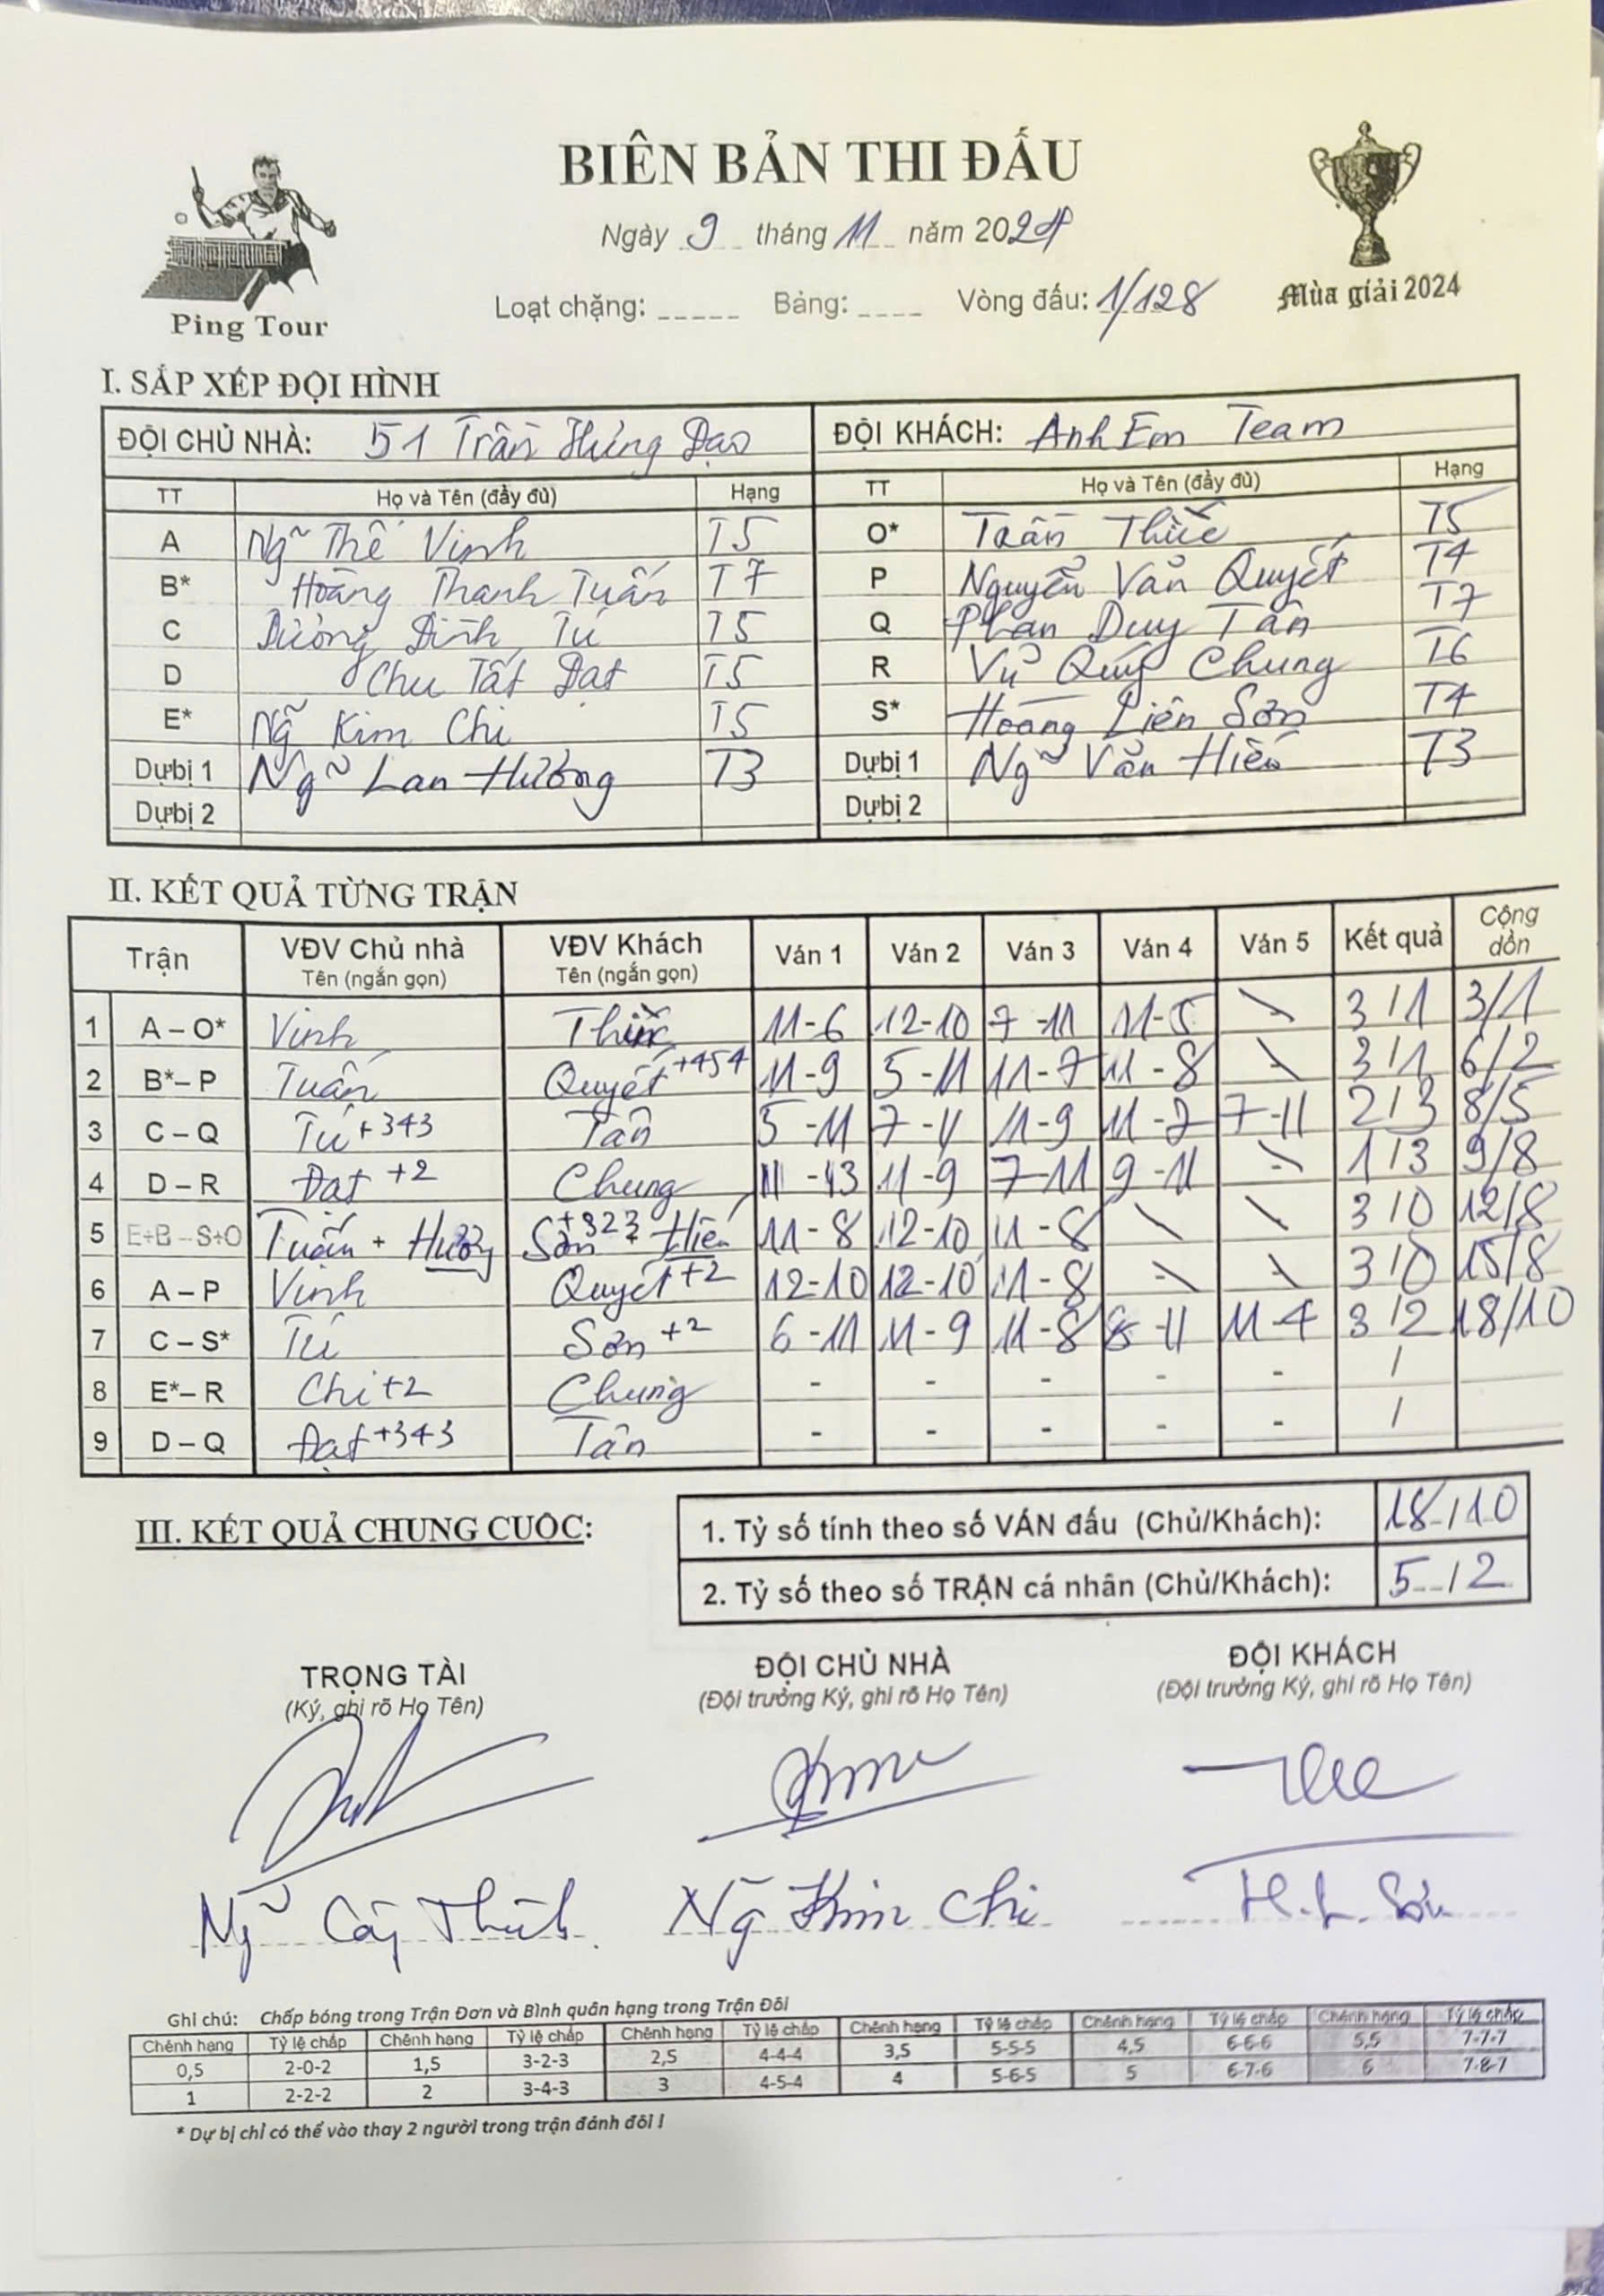 BIÊN BẢN THI ĐẤU
Ngày 9 tháng 11 năm 2024
Loạt chặng: _____ Bảng: ____ Vòng đấu: 1/128
Mùa giải 2024
Ping Tour
I. SẮP XẾP ĐỘI HÌNH
ĐỘI CHỦ NHÀ: 51 Trần Hưng Đạo ĐỘI KHÁCH: Anh Em Team
TT Họ và Tên (đầy đủ) Hạng TT Họ và Tên (đầy đủ) Hạng
A Ngũ Thế Vinh T5 O* Trần Thức T5
B* Hoàng Thanh Tuấn T7 P Nguyễn Văn Quyết T4
C Dương Đình Tú T5 Q Phan Duy Tân T7
D Chu Tất Đạt T5 R Vũ Quý Chung T6
E* Ng~ Kim Chi T5 S* Hoàng Liên Sơn T4
Dự bị 1 Ng~ Lan Hương T3 Dự bị 1 Ng~ Văn Hiến T3
Dự bị 2 Dự bị 2
II. KẾT QUẢ TỪNG TRẬN
Trận VĐV Chủ nhà Tên (ngắn gọn) VĐV Khách Tên (ngắn gọn) Ván 1 Ván 2 Ván 3 Ván 4 Ván 5 Kết quả Cộng dồn
1 A – O* Vinh Thức 11-6 12-10 7-11 11-5 \ 3/1 3/1
2 B*– P Tuấn Quyết +454 11-9 5-11 11-7 11-8 \ 3/1 6/2
3 C – Q Tú +343 Tân 5-11 7-11 11-9 11-7 7-11 2/3 8/5
4 D – R Đạt +2 Chung 11-13 11-9 7-11 9-11 \ 1/3 9/8
5 E+B – S+O Tuấn + Hương Sơn +323 + Hiến 11-8 12-10 11-8 \ \ 3/0 12/8
6 A – P Vinh Quyết +2 12-10 12-10 11-8 \ \ 3/0 15/8
7 C – S* Tú Sơn +2 6-11 11-9 11-8 8-11 11-4 3/2 18/10
8 E*– R Chi +2 Chung - - - - - /
9 D – Q Đạt +343 Tân - - - - - /
III. KẾT QUẢ CHUNG CUỘC:
1. Tỷ số tính theo số VÁN đấu (Chủ/Khách): 18/10
2. Tỷ số theo số TRẬN cá nhân (Chủ/Khách): 5/2
TRỌNG TÀI ĐỘI CHỦ NHÀ ĐỘI KHÁCH
(Ký, ghi rõ Họ Tên) (Đội trưởng Ký, ghi rõ Họ Tên) (Đội trưởng Ký, ghi rõ Họ Tên)
Ng~ Kim Chi H.L. Sơn
Ghi chú: Chấp bóng trong Trận Đơn và Bình quân hạng trong Trận Đôi
Chênh hạng Tỷ lệ chấp Chênh hạng Tỷ lệ chấp Chênh hạng Tỷ lệ chấp Chênh hạng Tỷ lệ chấp Chênh hạng Tỷ lệ chấp Chênh hạng Tỷ lệ chấp
0,5 2-0-2 1,5 3-2-3 2,5 4-4-4 3,5 5-5-5 4,5 6-6-6 5,5 7-7-7
1 2-2-2 2 3-4-3 3 4-5-4 4 5-6-5 5 6-7-6 6 7-8-7
* Dự bị chỉ có thể vào thay 2 người trong trận đánh đôi !